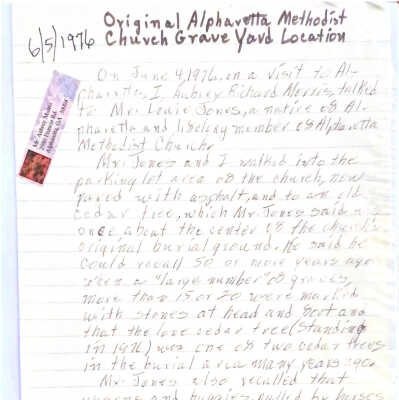 Original Alpharetta Methodist
6/5/1976 Church Grave Yard Location
On June 4, 1976, on a visit to Al-
pharetta, I, Aubrey Richard Morris, talked
to Mr. Louie Jones, a native of Al-
pharetta and lifelong member of Alpharetta
Methodist Church.
Mr. Jones and I walked into the
parking lot area of the church, now
paved with asphalt, and to an old
cedar tree, which Mr. Jones said
once about the center of the church's
original burial ground. He said he
could recall 50 or more years ago
were a "large number" of graves,
more than 15 or 20 were marked
with stones at head and foot and
that the lone cedar tree (standing
in 1976) was one of two cedar trees
in the burial area many years ago.
Mr. Jones also recalled that
wagons and buggies pulled by horses
Mr. Aubrey Morris
Alpharetta, GA